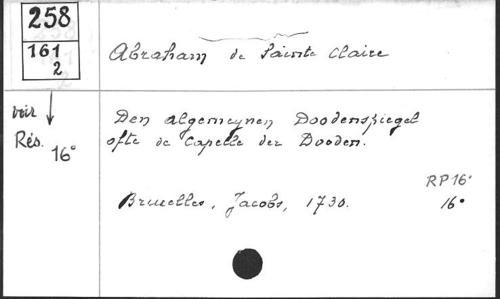 258
161
2
Abraham de Sainte Claire
voir
Rés.
16°
Den algemeynen Doodenspiegel
ofte de Capelle der Dooden.
RP 16°
Bruxelles, Jacobs, 1730.
16°